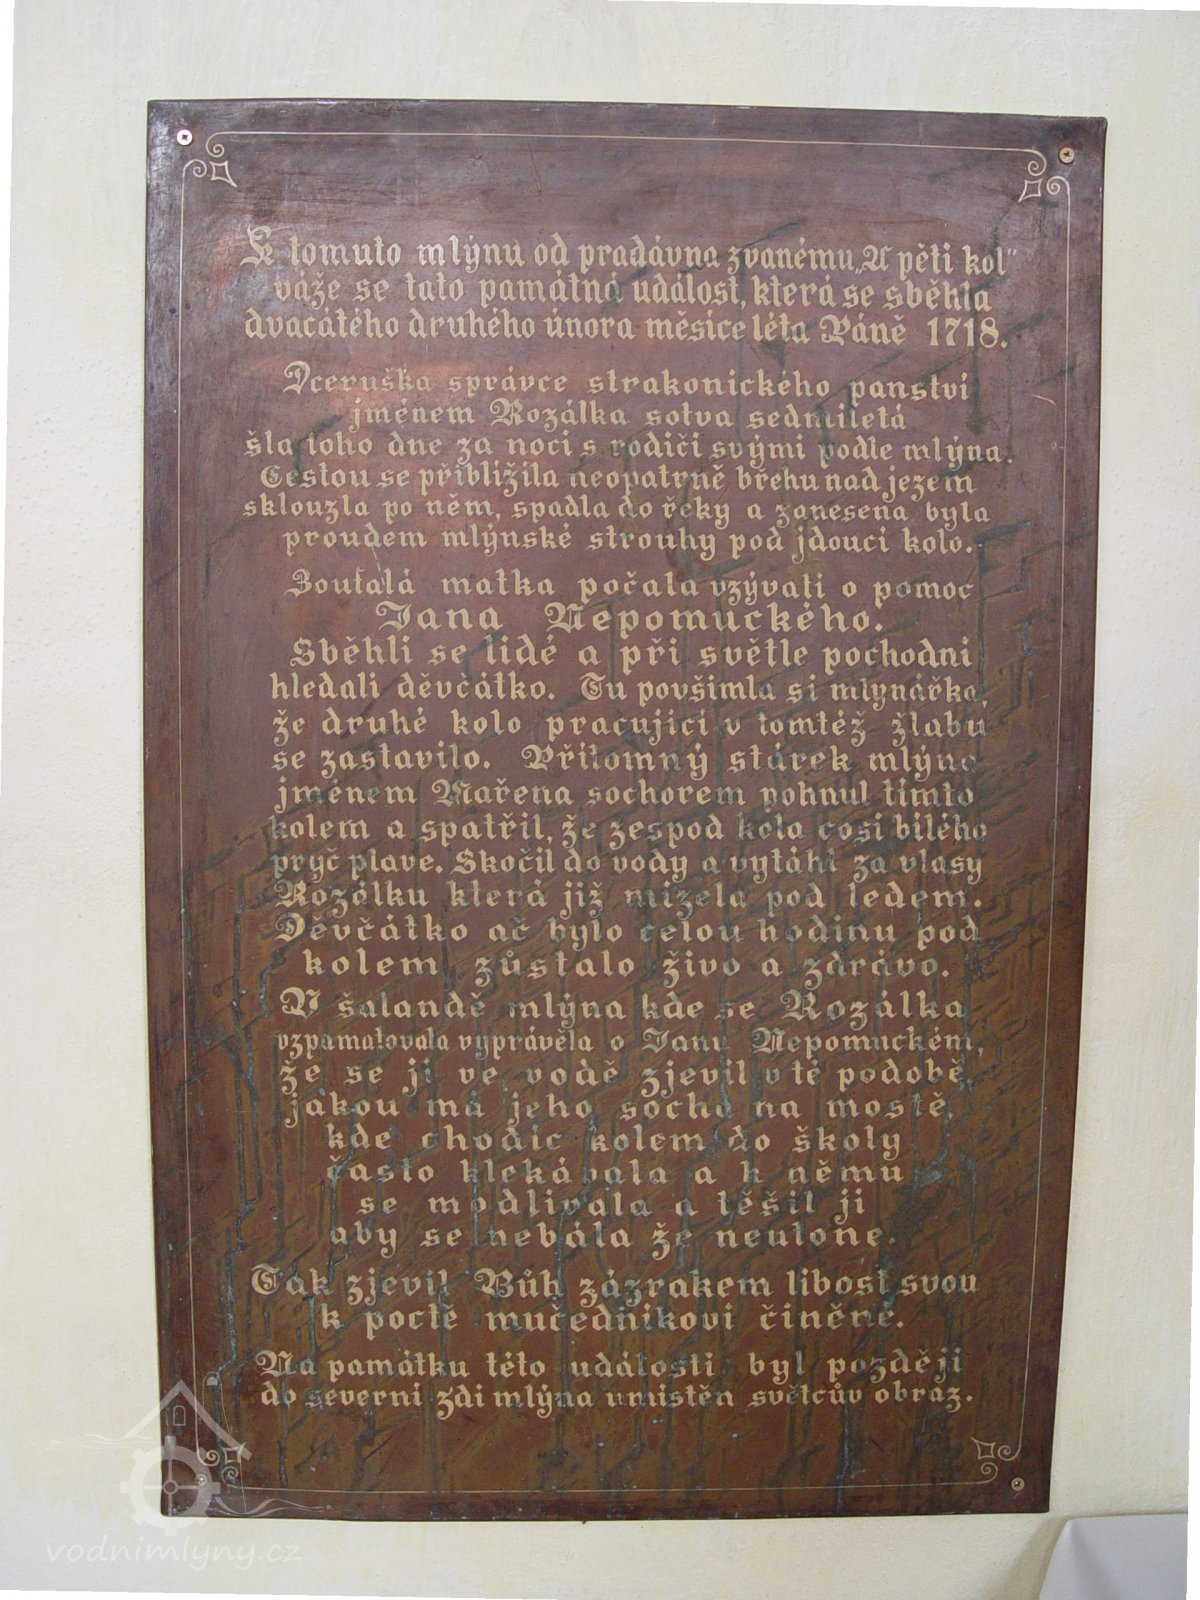 K tomuto mlýnu od pradávna zvanému „U pěti kol“
váže se tato památná událost, která se sběhla
dvacátého druhého února měsíce léta Páně 1718.
Dceruška správce strakonického panství
jménem Rozálka sotva sedmiletá
šla toho dne za noci s rodiči svými podle mlýna.
Cestou se přiblížila neopatrně břehu nad jezem
sklouzla po něm, spadla do řeky a zanesena byla
proudem mlýnské strouhy pod jdoucí kolo.
Zoufalá matka počala vzývati o pomoc
Jana Nepomuckého.
Sběhli se lidé a při světle pochodní
hledali děvčátko. Tu povšimla si mlynářka,
že druhé kolo pracující v tomtéž žlabu
se zastavilo. Přítomný stárek mlýna
jménem Mařena sochorem pohnul tímto
kolem a spatřil, že zespod kola cosi bílého
pryč plave. Skočil do vody a vytáhl za vlasy
Rozálku která již mizela pod ledem.
Děvčátko ač bylo celou hodinu pod
kolem zůstalo živo a zdrávo.
V šalandě mlýna kde se Rozálka
vzpamatovala vyprávěla o Janu Nepomuckém,
že se jí ve vodě zjevil v té podobě,
jakou má jeho socha na mostě,
kde chodíc kolem do školy
často klekávala a k němu
se modlívala a těšil ji
aby se nebála že neutone.
Tak zjevil Bůh zázrakem libost svou
k poctě mučedníkovi činěné.
Na památku této události byl později
do severní zdi mlýna umístěn světcův obraz.
vodnimlyny.cz